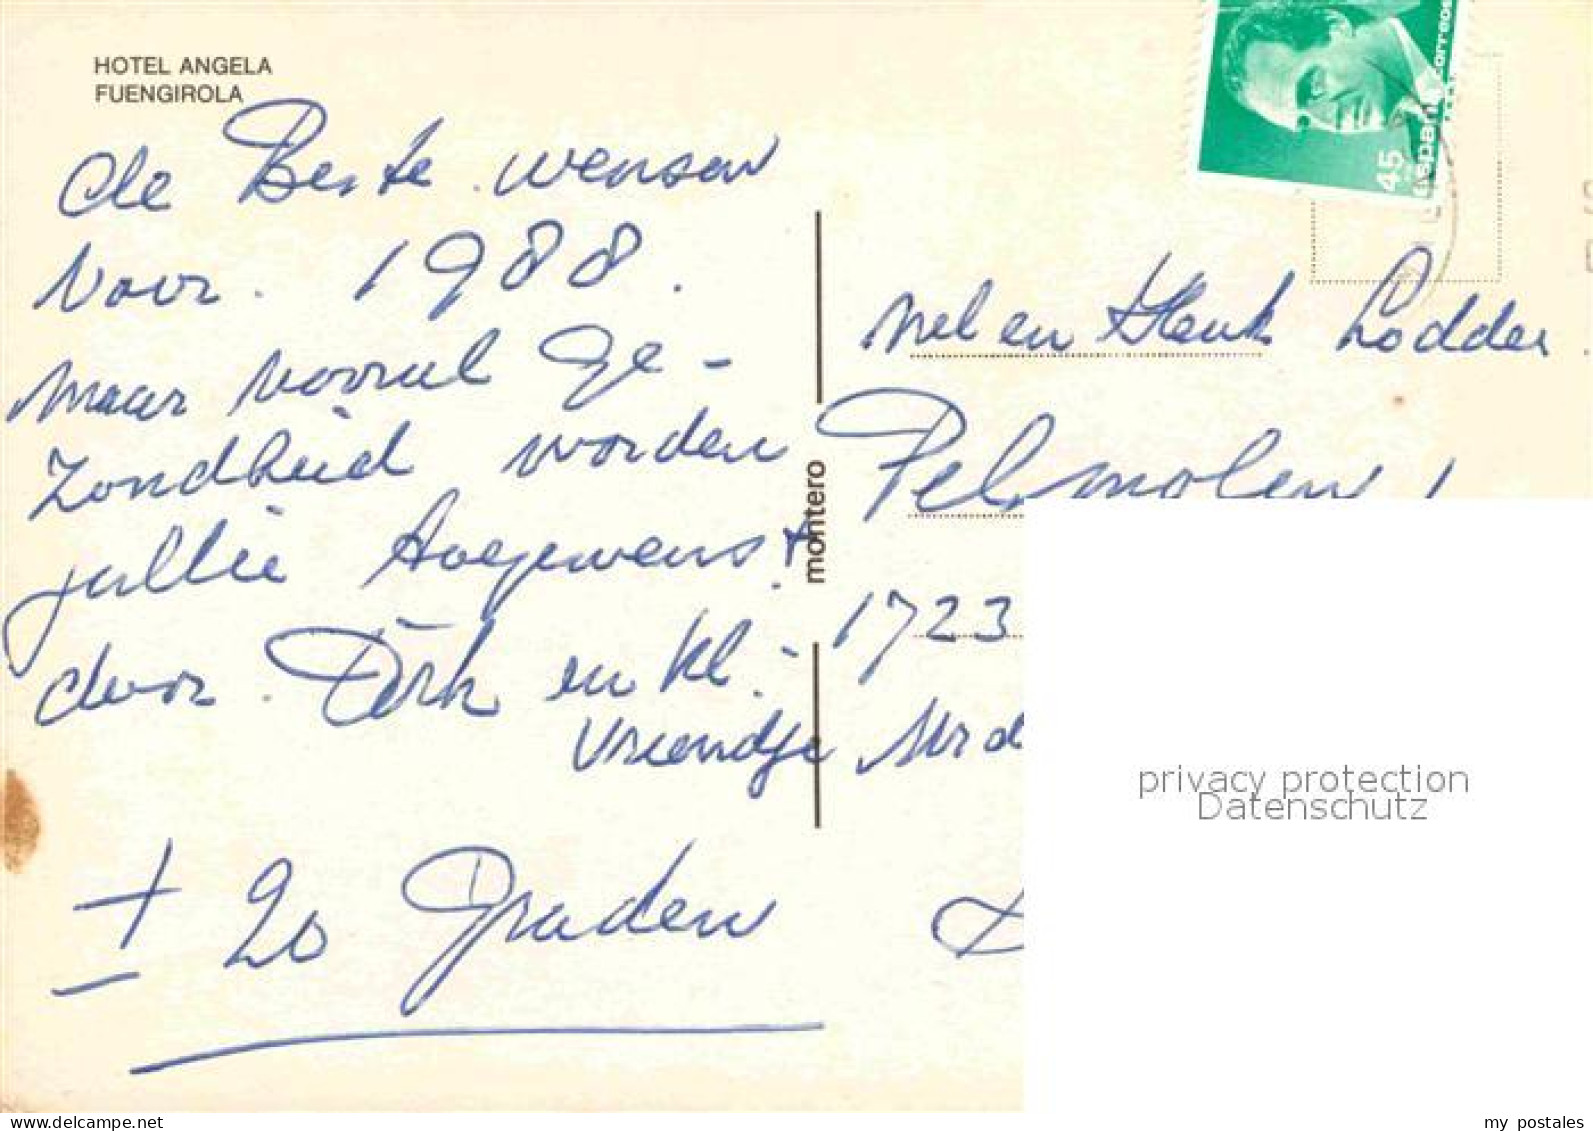 HOTEL ANGELA
FUENGIROLA
de Beste wensen
voor 1988.
maar vooral ge-
zondheid worden
jullie toegewenst
door Dirk en kl.
vriendje
± 20 Graden
montero
45
España correos
Nel en Henk Lodder
Pelmolen 1
1723
privacy protection
Datenschutz
my postales